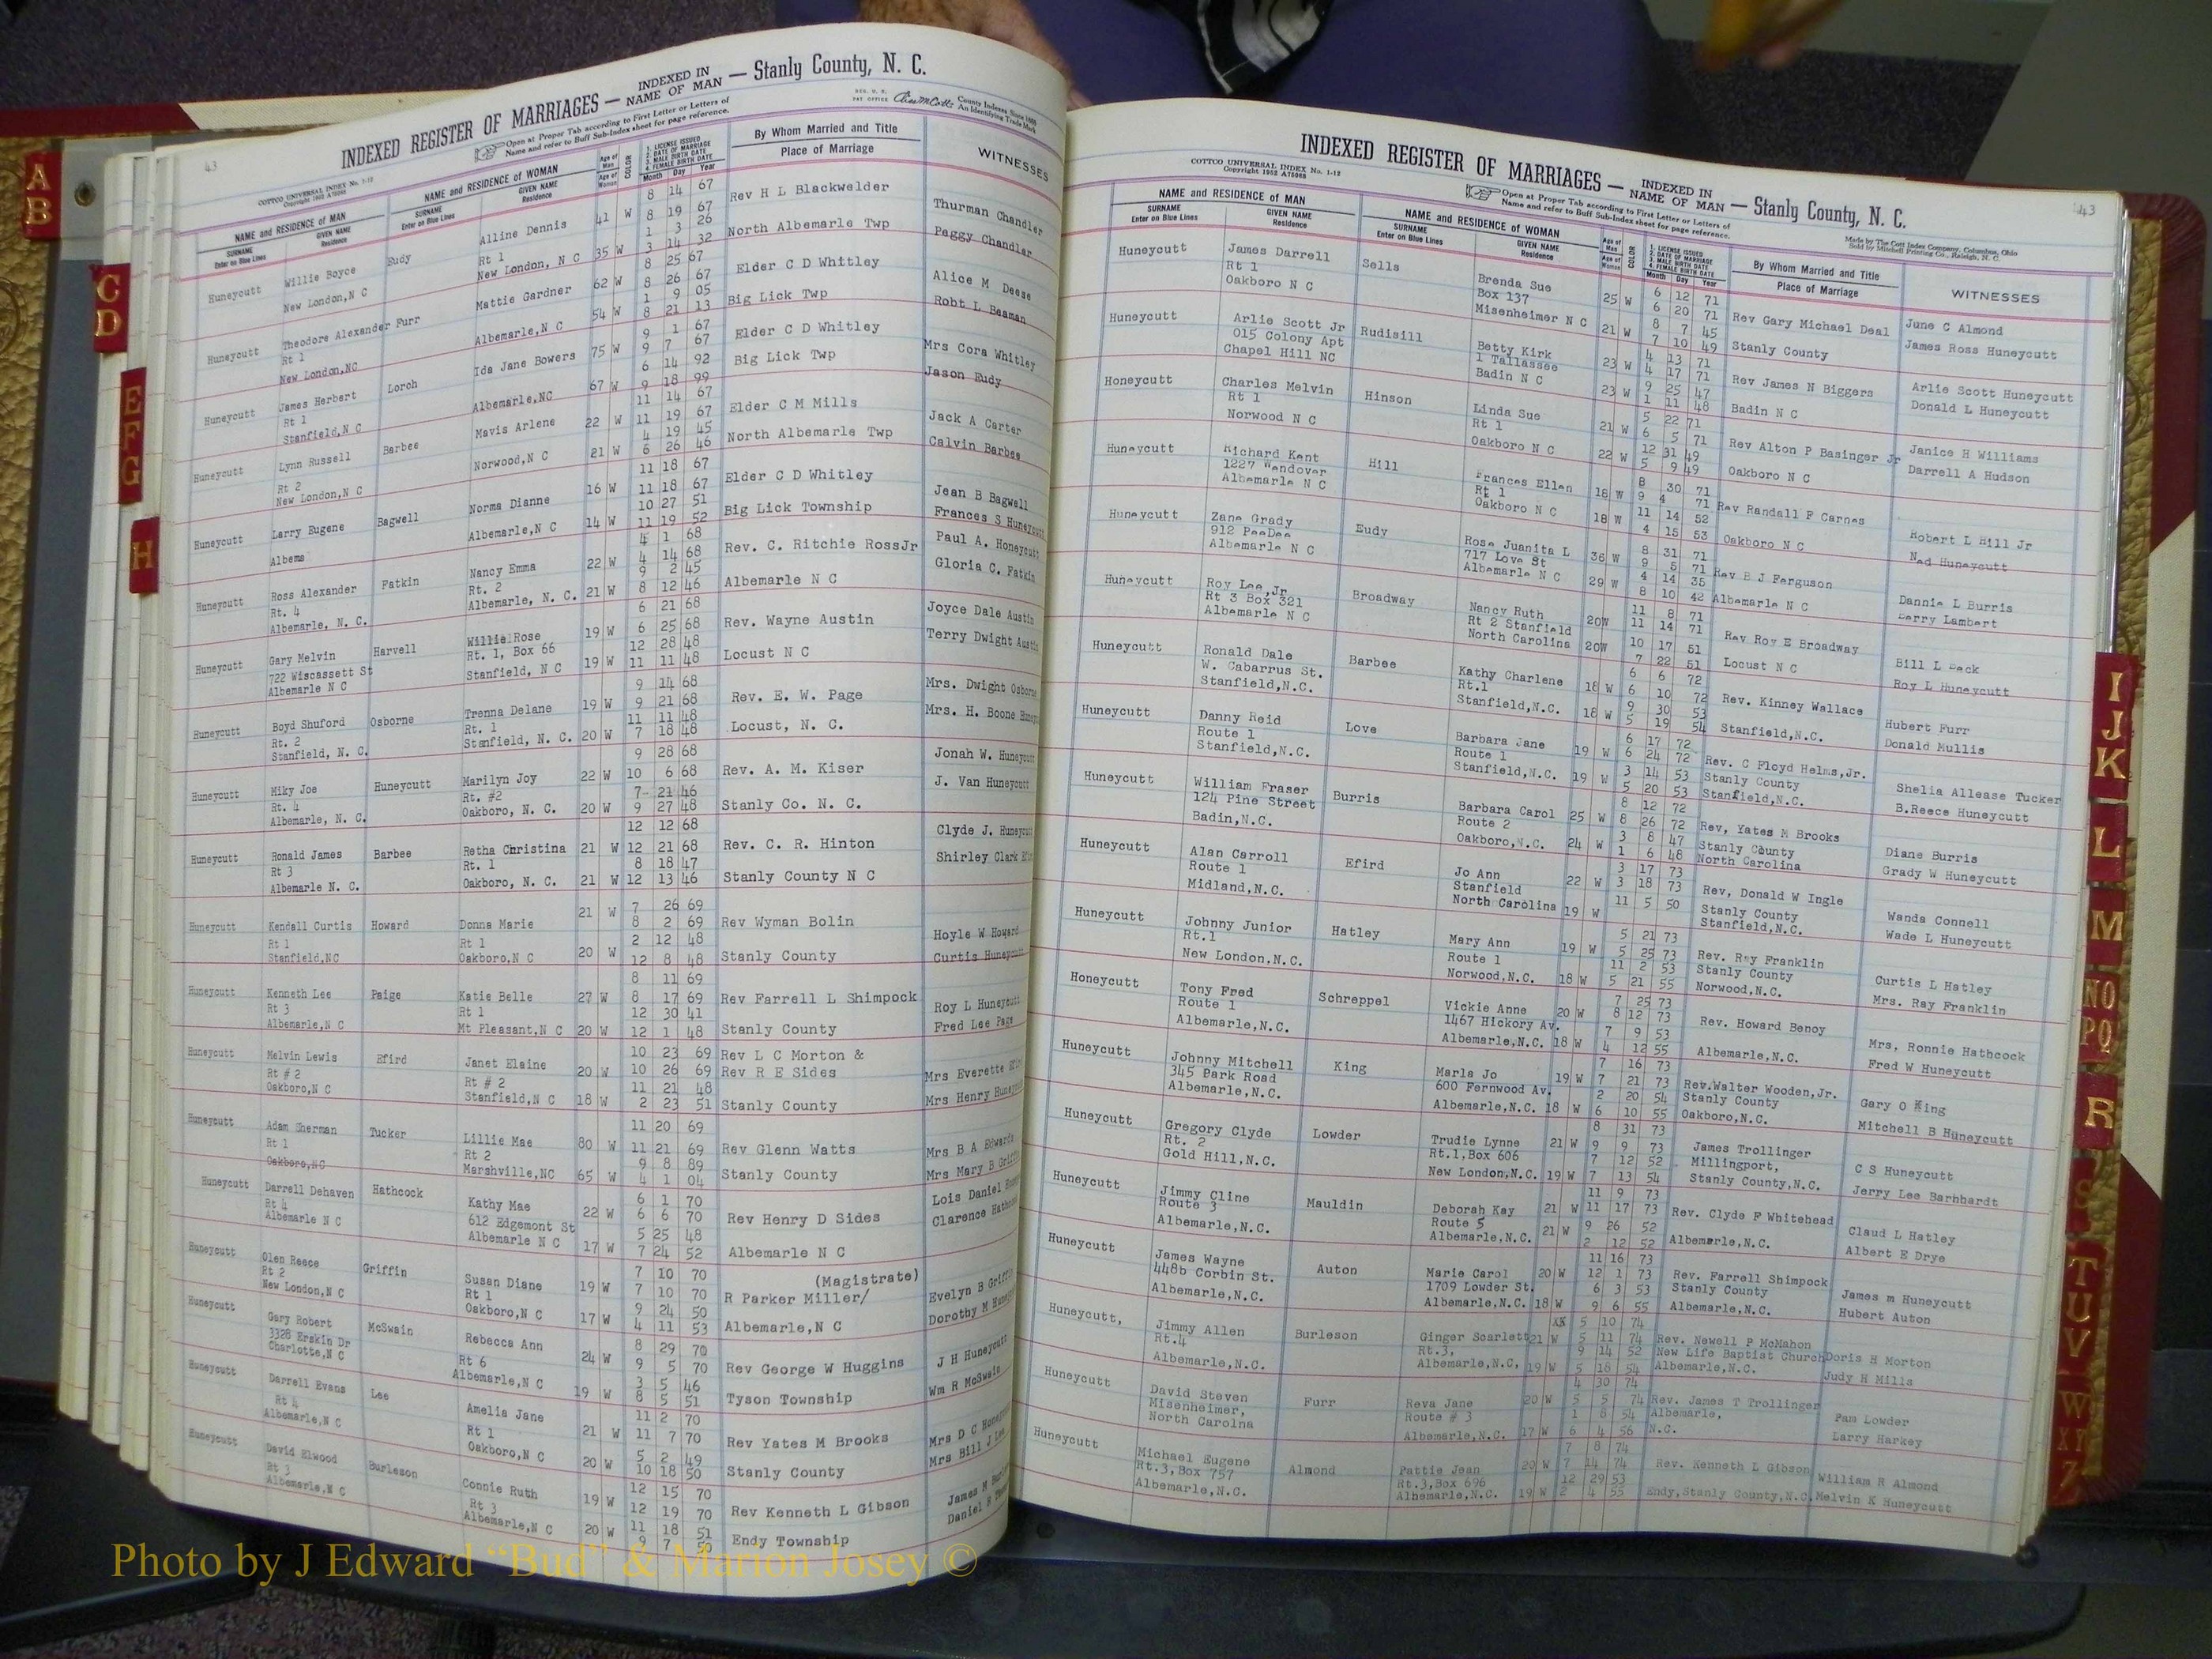 43
INDEXED REGISTER OF MARRIAGES — INDEXED IN NAME OF MAN — Stanly County, N. C.
COTTCO UNIVERSAL INDEX No. 1-12
Copyright 1952 A75088
Open at Proper Tab according to First Letter or Letters of
Name and refer to Buff Sub-Index sheet for page reference.
REG. U. S.
PAT OFFICE
County Indexes Since 1888
An Identifying Trade Mark
NAME and RESIDENCE OF MAN
SURNAME
Enter on Blue Lines
GIVEN NAME
Residence
NAME and RESIDENCE OF WOMAN
SURNAME
Enter on Blue Lines
GIVEN NAME
Residence
Age of Man
Age of Woman
COLOR
1. LICENSE ISSUED
2. DATE OF MARRIAGE
3. MALE BIRTH DATE
4. FEMALE BIRTH DATE
Month Day Year
By Whom Married and Title
Place of Marriage
WITNESSES
Huneycutt Willie Boyce Eudy Alline Dennis 41 W 8 14 67 Rev H L Blackwelder Thurman Chandler
8 19 67
New London,N C Rt 1 1 3 26 North Albemarle Twp Peggy Chandler
New London, N C 35 W 3 14 32
Huneycutt Theodore Alexander Furr Mattie Gardner 62 W 8 25 67 Elder C D Whitley Alice M Deese
Rt 1 8 26 67
New London,NC Albemarle,N C 54 W 1 9 05 Big Lick Twp Robt L Beaman
8 21 13
Huneycutt James Herbert Lorch Ida Jane Bowers 75 W 9 1 67 Elder C D Whitley Mrs Cora Whitley
Rt 1 9 7 67
Stanfield,N C Albemarle,NC 67 W 6 14 92 Big Lick Twp Jason Eudy
9 18 99
Huneycutt Lynn Russell Barbee Mavis Arlene 22 W 11 14 67 Elder C M Mills Jack A Carter
Rt 2 11 19 67
New London,N C Norwood,N C 21 W 4 19 45 North Albemarle Twp Calvin Barbee
6 26 46
Huneycutt Larry Eugene Bagwell Norma Dianne 16 W 11 18 67 Elder C D Whitley Jean B Bagwell
11 18 67
Albema Albemarle,N C 14 W 10 27 51 Big Lick Township Frances S Huneycutt
11 19 52
Huneycutt Ross Alexander Fatkin Nancy Emma 22 W 4 1 68 Rev. C. Ritchie RossJr Paul A. Honeycutt
Rt. 4 Rt. 2 4 14 68
Albemarle, N. C. Albemarle, N. C. 21 W 9 2 45 Albemarle N C Gloria C. Fatkin
8 12 46
Huneycutt Gary Melvin Harvell Willie Rose 19 W 6 21 68 Rev. Wayne Austin Joyce Dale Austin
722 Wiscassett St Rt. 1, Box 66 6 25 68
Albemarle N C Stanfield, N C 19 W 12 28 48 Locust N C Terry Dwight Austin
11 11 48
Huneycutt Boyd Shuford Osborne Trenna Delane 19 W 9 14 68 Rev. E. W. Page Mrs. Dwight Osborne
Rt. 2 Rt. 1 9 21 68
Stanfield, N. C. Stanfield, N. C. 20 W 11 11 48 Locust, N. C. Mrs. H. Boone
7 18 48
Huneycutt Miky Joe Huneycutt Marilyn Joy 22 W 9 28 68 Rev. A. M. Kiser Jonah W. Huneycutt
Rt. 4 Rt. #2 10 6 68
Albemarle, N. C. Oakboro, N. C. 20 W 7 21 46 Stanly Co. N. C. J. Van Huneycutt
9 27 48
Huneycutt Ronald James Barbee Retha Christina 21 W 12 12 68 Rev. C. R. Hinton Clyde J. Huneycutt
Rt 3 Rt. 1 12 21 68
Albemarle N. C. Oakboro, N. C. 21 W 8 18 47 Stanly County N C Shirley Clark
12 13 46
Huneycutt Kendall Curtis Howard Donna Marie 21 W 7 26 69 Rev Wyman Bolin Hoyle W Howard
Rt 1 Rt 1 8 2 69
Stanfield,NC Oakboro,N C 20 W 2 12 48 Stanly County Curtis Huneycutt
12 8 48
Huneycutt Kenneth Lee Paige Katie Belle 27 W 8 11 69 Rev Farrell L Shimpock Roy L Huneycutt
Rt 3 Rt 1 8 17 69
Albemarle,N C Mt Pleasant,N C 20 W 12 30 41 Stanly County Fred Lee Page
12 1 48
Huneycutt Melvin Lewis Efird Janet Elaine 20 W 10 23 69 Rev L C Morton & Mrs Everette
Rt # 2 Rt # 2 10 26 69 Rev R E Sides
Oakboro,N C Stanfield,N C 18 W 11 21 48 Stanly County Mrs Henry
2 23 51
Huneycutt Adam Sherman Tucker Lillie Mae 80 W 11 20 69 Rev Glenn Watts Mrs B A Edwards
Rt 1 Rt 2 11 21 69
Oakboro,NC Marshville,NC 65 W 9 8 89 Stanly County Mrs Mary B
4 1 04
Huneycutt Darrell Dehaven Hathcock Kathy Mae 22 W 6 1 70 Rev Henry D Sides Lois Daniel
Rt 4 612 Edgemont St 6 6 70
Albemarle N C Albemarle N C 17 W 5 25 48 Albemarle N C Clarence
7 24 52
Huneycutt Olen Reece Griffin Susan Diane 19 W 7 10 70 (Magistrate) Evelyn B
Rt 2 Rt 1 7 10 70 R Parker Miller/
New London,N C Oakboro,N C 17 W 9 24 50 Albemarle,N C Dorothy M
4 11 53
Huneycutt Gary Robert McSwain Rebecca Ann 24 W 8 29 70 Rev George W Huggins J H Huneycutt
3328 Erskin Dr Rt 6 9 5 70
Charlotte,N C Albemarle,N C 19 W 3 5 46 Tyson Township Wm R McSwain
8 5 51
Huneycutt Darrell Evans Lee Amelia Jane 21 W 11 2 70 Rev Yates M Brooks Mrs D C
Rt 4 Rt 1 11 7 70
Albemarle,N C Oakboro,N C 20 W 5 2 49 Stanly County Mrs Bill J
10 18 50
Huneycutt David Elwood Burleson Connie Ruth 19 W 12 15 70 Rev Kenneth L Gibson James M
Rt 3 Rt 3 12 19 70
Albemarle,N C Albemarle,N C 20 W 11 18 51 Endy Township Daniel
9 7 50
43
INDEXED REGISTER OF MARRIAGES — INDEXED IN NAME OF MAN — Stanly County, N. C.
COTTCO UNIVERSAL INDEX No. 1-12
Copyright 1952 A75088
Open at Proper Tab according to First Letter or Letters of
Name and refer to Buff Sub-Index sheet for page reference.
Made by The Cott Index Company, Columbus, Ohio
Sold by Mitchell Printing Co., Raleigh, N. C.
NAME and RESIDENCE OF MAN
SURNAME
Enter on Blue Lines
GIVEN NAME
Residence
NAME and RESIDENCE OF WOMAN
SURNAME
Enter on Blue Lines
GIVEN NAME
Residence
Age of Man
Age of Woman
COLOR
1. LICENSE ISSUED
2. DATE OF MARRIAGE
3. MALE BIRTH DATE
4. FEMALE BIRTH DATE
Month Day Year
By Whom Married and Title
Place of Marriage
WITNESSES
Huneycutt James Darrell Sells Brenda Sue 25 W 6 12 71 Rev Gary Michael Deal June C Almond
Rt 1 Box 137 6 20 71
Oakboro N C Misenheimer N C 21 W 8 7 45 Stanly County James Ross Huneycutt
7 10 49
Huneycutt Arlie Scott Jr Rudisill Betty Kirk 23 W 4 13 71 Rev James N Biggers Arlie Scott Huneycutt
015 Colony Apt 1 Tallassee 4 17 71
Chapel Hill NC Badin N C 23 W 9 25 47 Badin N C Donald L Huneycutt
1 11 48
Honeycutt Charles Melvin Hinson Linda Sue 21 W 5 22 71 Rev Alton P Basinger Jr Janice H Williams
Rt 1 Rt 1 6 5 71
Norwood N C Oakboro N C 22 W 12 31 49 Oakboro N C Darrell A Hudson
5 9 49
Huneycutt Richard Kent Hill Frances Ellen 18 W 8 30 71 Rev Randall F Carnes Robert L Hill Jr
1227 Wendover Rt 1 9 4 71
Albemarle N C Oakboro N C 18 W 11 14 52 Oakboro N C Ned Huneycutt
4 15 53
Huneycutt Zane Grady Eudy Rose Juanita L 36 W 8 31 71 Rev B J Ferguson Dannie L Burris
912 PeeDee 717 Love St 9 5 71
Albemarle N C Albemarle N C 29 W 4 14 35 Albemarle N C Lambert
8 10 42
Huneycutt Roy Lee,Jr Broadway Nancy Ruth 20W 11 8 71 Rev Roy E Broadway Bill L
Rt 3 Box 321 Rt 2 Stanfield 11 14 71
Albemarle N C North Carolina 20W 10 17 51 Locust N C Roy L Huneycutt
7 22 51
Huneycutt Ronald Dale Barbee Kathy Charlene 18 W 6 6 72 Rev. Kinney Wallace Hubert Furr
W. Cabarrus St. Rt.1 6 10 72
Stanfield,N.C. Stanfield,N.C. 18 W 9 30 53 Stanfield,N.C. Donald Mullis
5 19 54
Huneycutt Danny Reid Love Barbara Jane 19 W 6 17 72 Rev. C Floyd Helms,Jr. Shelia Allease Tucker
Route 1 Route 1 6 24 72 Stanly County
Stanfield,N.C. Stanfield,N.C. 19 W 3 14 53 Stanfield,N.C. B.Reece Huneycutt
5 20 53
Huneycutt William Fraser Burris Barbara Carol 25 W 8 12 72 Rev, Yates M Brooks Diane Burris
124 Pine Street Route 2 8 26 72 Stanly County
Badin,N.C. Oakboro,N.C. 24 W 3 8 47 North Carolina Grady W Huneycutt
1 6 48
Huneycutt Alan Carroll Efird Jo Ann 22 W 3 17 73 Rev, Donald W Ingle Wanda Connell
Route 1 Stanfield 3 18 73 Stanly County
Midland,N.C. North Carolina 19 W 11 5 50 Stanfield,N.C. Wade L Huneycutt
Huneycutt Johnny Junior Hatley Mary Ann 19 W 5 21 73 Rev. Ray Franklin Curtis L Hatley
Rt.1 Route 1 5 25 73 Stanly County
New London,N.C. Norwood,N.C. 18 W 11 2 53 Norwood,N.C. Mrs. Ray Franklin
5 21 55
Honeycutt Tony Fred Schreppel Vickie Anne 20 W 7 25 73 Rev. Howard Benoy Mrs, Ronnie Hathcock
Route 1 1467 Hickory Av. 8 12 73
Albemarle,N.C. Albemarle,N.C. 18 W 7 9 53 Albemarle,N.C. Fred W Huneycutt
4 12 55
Huneycutt Johnny Mitchell King Marla Jo 19 W 7 16 73 Rev.Walter Wooden,Jr. Gary O King
345 Park Road 600 Fernwood Av. 7 21 73 Stanly County
Albemarle,N.C. Albemarle,N.C. 18 W 2 20 54 Oakboro,N.C. Mitchell B Huneycutt
6 10 55
Huneycutt Gregory Clyde Lowder Trudie Lynne 21 W 8 31 73 James Trollinger C S Huneycutt
Rt. 2 Rt.1,Box 606 9 9 73 Millingport,
Gold Hill,N.C. New London,N.C. 19 W 7 12 52 Stanly County,N.C. Jerry Lee Barhhardt
7 13 54
Huneycutt Jimmy Cline Mauldin Deborah Kay 21 W 11 9 73 Rev. Clyde F Whitehead Claud L Hatley
Route 3 Route 5 11 17 73
Albemarle,N.C. Albemarle,N.C. 21 W 9 26 52 Albemarle,N.C. Albert E Drye
2 12 52
Huneycutt James Wayne Auton Marie Carol 20 W 11 16 73 Rev. Farrell Shimpock James m Huneycutt
448b Corbin St. 1709 Lowder St. 12 1 73 Stanly County
Albemarle,N.C. Albemarle,N.C. 18 W 6 3 53 Albemarle,N.C. Hubert Auton
9 6 55
Huneycutt, Jimmy Allen Burleson Ginger Scarlett 21 W 5 10 74 Rev. Newell P McMahon Doris H Morton
Rt.4 Rt.3, 5 11 74 New Life Baptist Church
Albemarle,N.C. Albemarle,N.C, 19 W 9 14 52 Albemarle,N.C. Judy H Mills
5 18 54
Huneycutt David Steven Furr Reva Jane 20 W 4 30 74 Rev. James T Trollinger Pam Lowder
Misenheimer, Route # 3 5 5 74 Albemarle,
North Carolna Albemarle,N.C. 17 W 1 8 54 N.C. Larry Harkey
6 4 56
Huneycutt Michael Eugene Almond Pattie Jean 20 W 7 8 74 Rev. Kenneth L Gibson William R Almond
Rt.3,Box 757 Rt.3,Box 696 7 14 74
Albemarle,N.C. Albemarle,N.C. 19 W 12 29 53 Endy,Stanly County,N.C. Melvin K Huneycutt
2 4 55
A
B
C
D
E
F
G
H
I
J
K
L
M
NO
PQ
R
S
T
U
V
W
XY
Z
Photo by J Edward “Bud” & Marion Josey ©